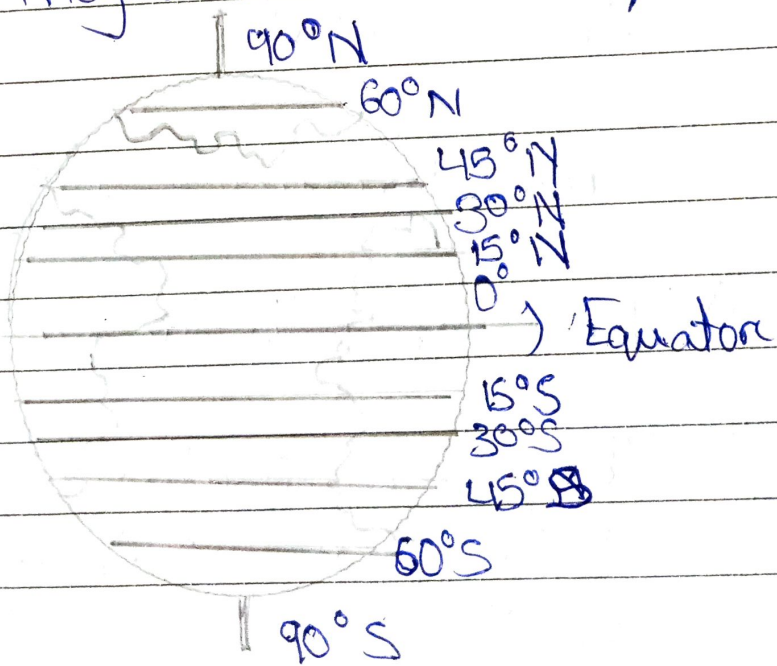 90°N
60°N
45°N
30°N
15°N
0°
) Equator
15°S
30°S
45°S
60°S
90°S